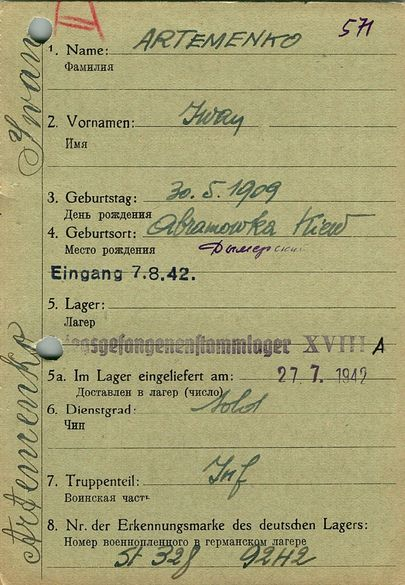 571
1. Name: ARTEMENKO
Фамилия
2. Vornamen: Iwan
Имя
3. Geburtstag: 30.5.1909
День рождения
4. Geburtsort: Abramowka Kiew
Место рождения Дымерский
Eingang 7.8.42.
5. Lager:
Лагер
gsgefangenenstammlager XVIII A
5a. Im Lager eingeliefert am: 27.7.1942
Доставлен в лагер (число)
6. Dienstgrad: Sold
Чин
7. Truppenteil: Inf
Воинская часть
8. Nr. der Erkennungsmarke des deutschen Lagers:
Номер военнопленного в германском лагере
St 328 9242
Artemenko Iwan